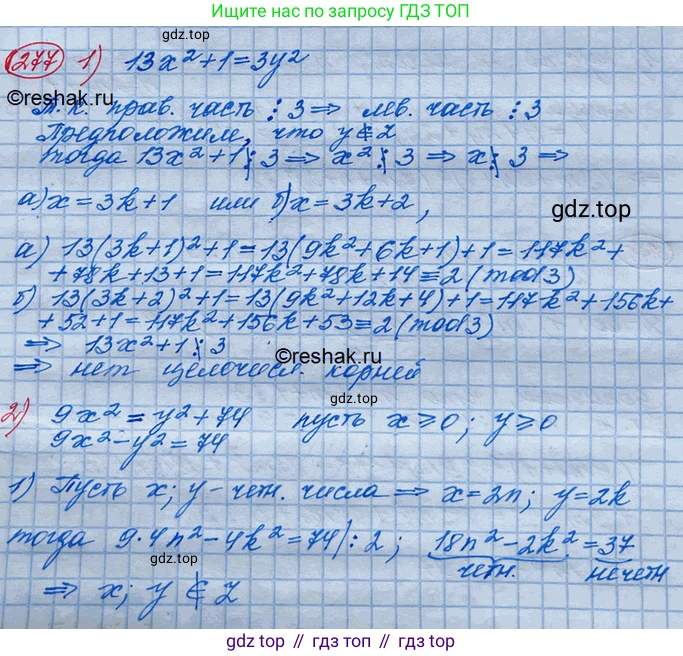 Ищите нас по запросу ГДЗ ТОП
gdz.top
277 1) 13x²+1=3y²
©reshak.ru
Т.к. прав. часть ⋮ 3 ⇒ лев. часть ⋮ 3
Предположим, что y ∉ Z
тогда 13x²+1 ⋮̸ 3 ⇒ x² ⋮̸ 3 ⇒ x ⋮̸ 3 ⇒
а) x = 3k+1 или б) x = 3k+2,
gdz.top
а) 13(3k+1)²+1=13(9k²+6k+1)+1=117k²+
+78k+13+1=117k²+78k+14≡2 (mod 3)
б) 13(3k+2)²+1=13(9k²+12k+4)+1=117k²+156k+
+52+1=117k²+156k+53≡2 (mod 3)
⇒ 13x²+1 ⋮̸ 3
©reshak.ru
⇒ нет целочисл. корней
gdz.top
2) 9x² = y²+74 пусть x⩾0; y⩾0
9x²-y²=74
1) Пусть x; y - четн. числа ⇒ x=2n; y=2k
тогда 9·4n²-4k²=74 |:2; 18n²-2k²=37
gdz.top
четн. нечетн
⇒ x; y ∉ Z
gdz.top // гдз.топ // gdz.top // гдз.топ